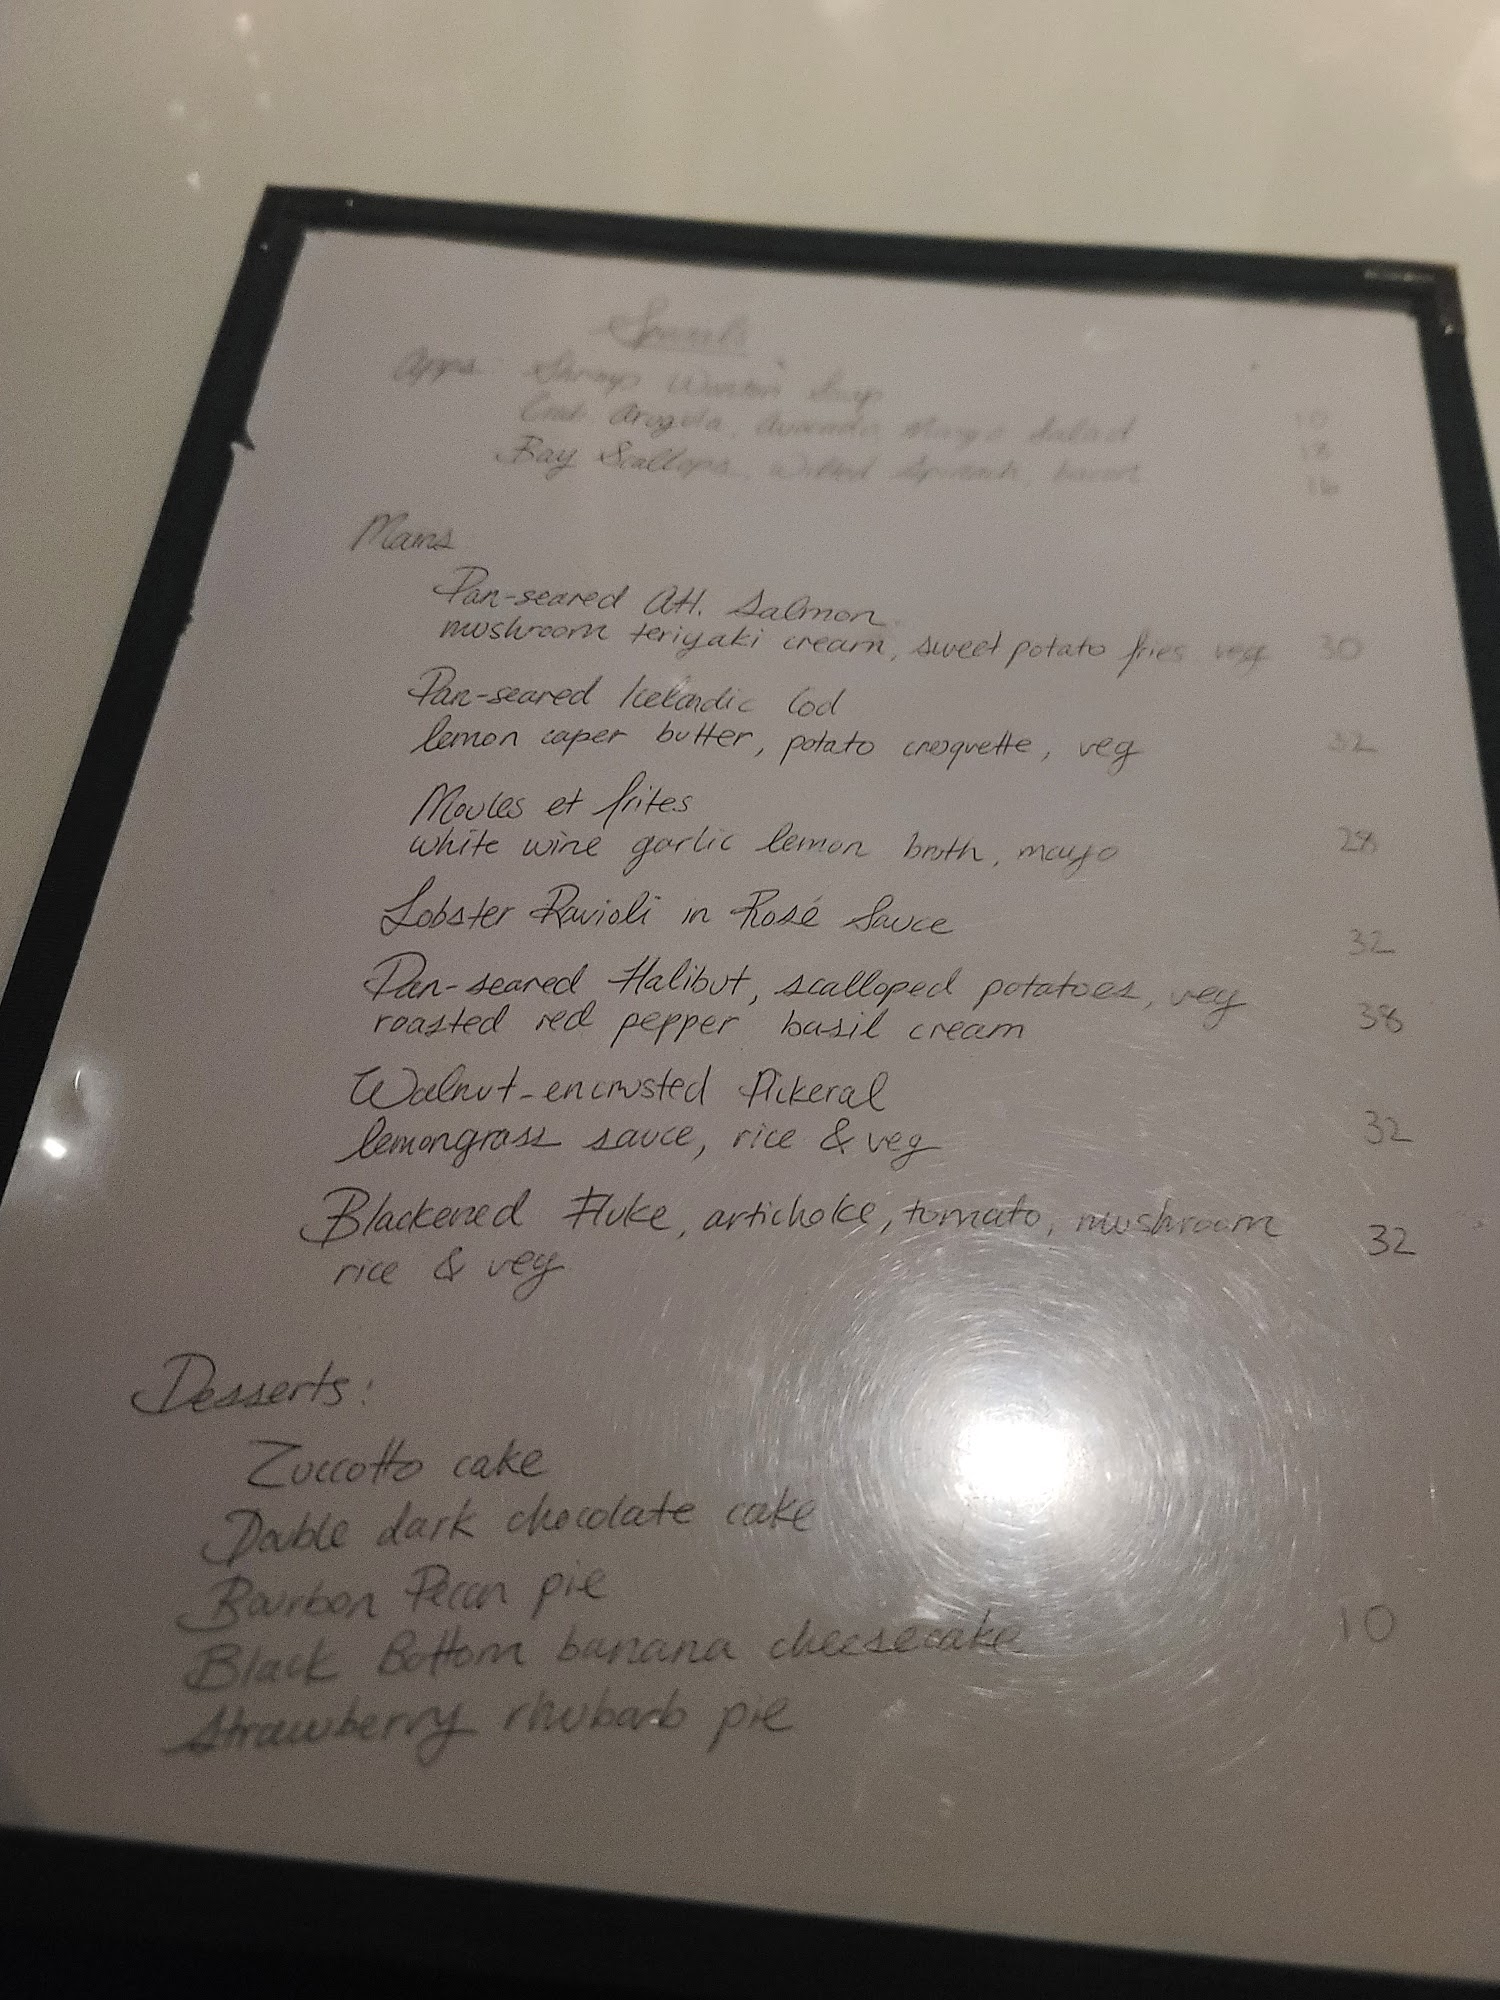 Specials
Apps Shrimp Wonton Soup 10
Crab, Arugula, Avocado, Mango Salad
Bay Scallops, Wilted Spinach, bacon 16
Mains
Pan-seared Atl. Salmon
mushroom teriyaki cream, sweet potato fries veg 30
Pan-seared Icelandic Cod
lemon caper butter, potato croquette, veg 32
Moules et frites
white wine garlic lemon broth, mayo 28
Lobster Ravioli in Rosé Sauce 32
Pan-seared Halibut, scalloped potatoes, veg
roasted red pepper basil cream 38
Walnut-encrusted Pickeral
lemongrass sauce, rice & veg 32
Blackened Fluke, artichoke, tomato, mushroom 32
rice & veg
Desserts:
Zuccotto cake
Double dark chocolate cake
Bourbon Pecan pie
Black Bottom banana cheesecake 10
Strawberry rhubarb pie